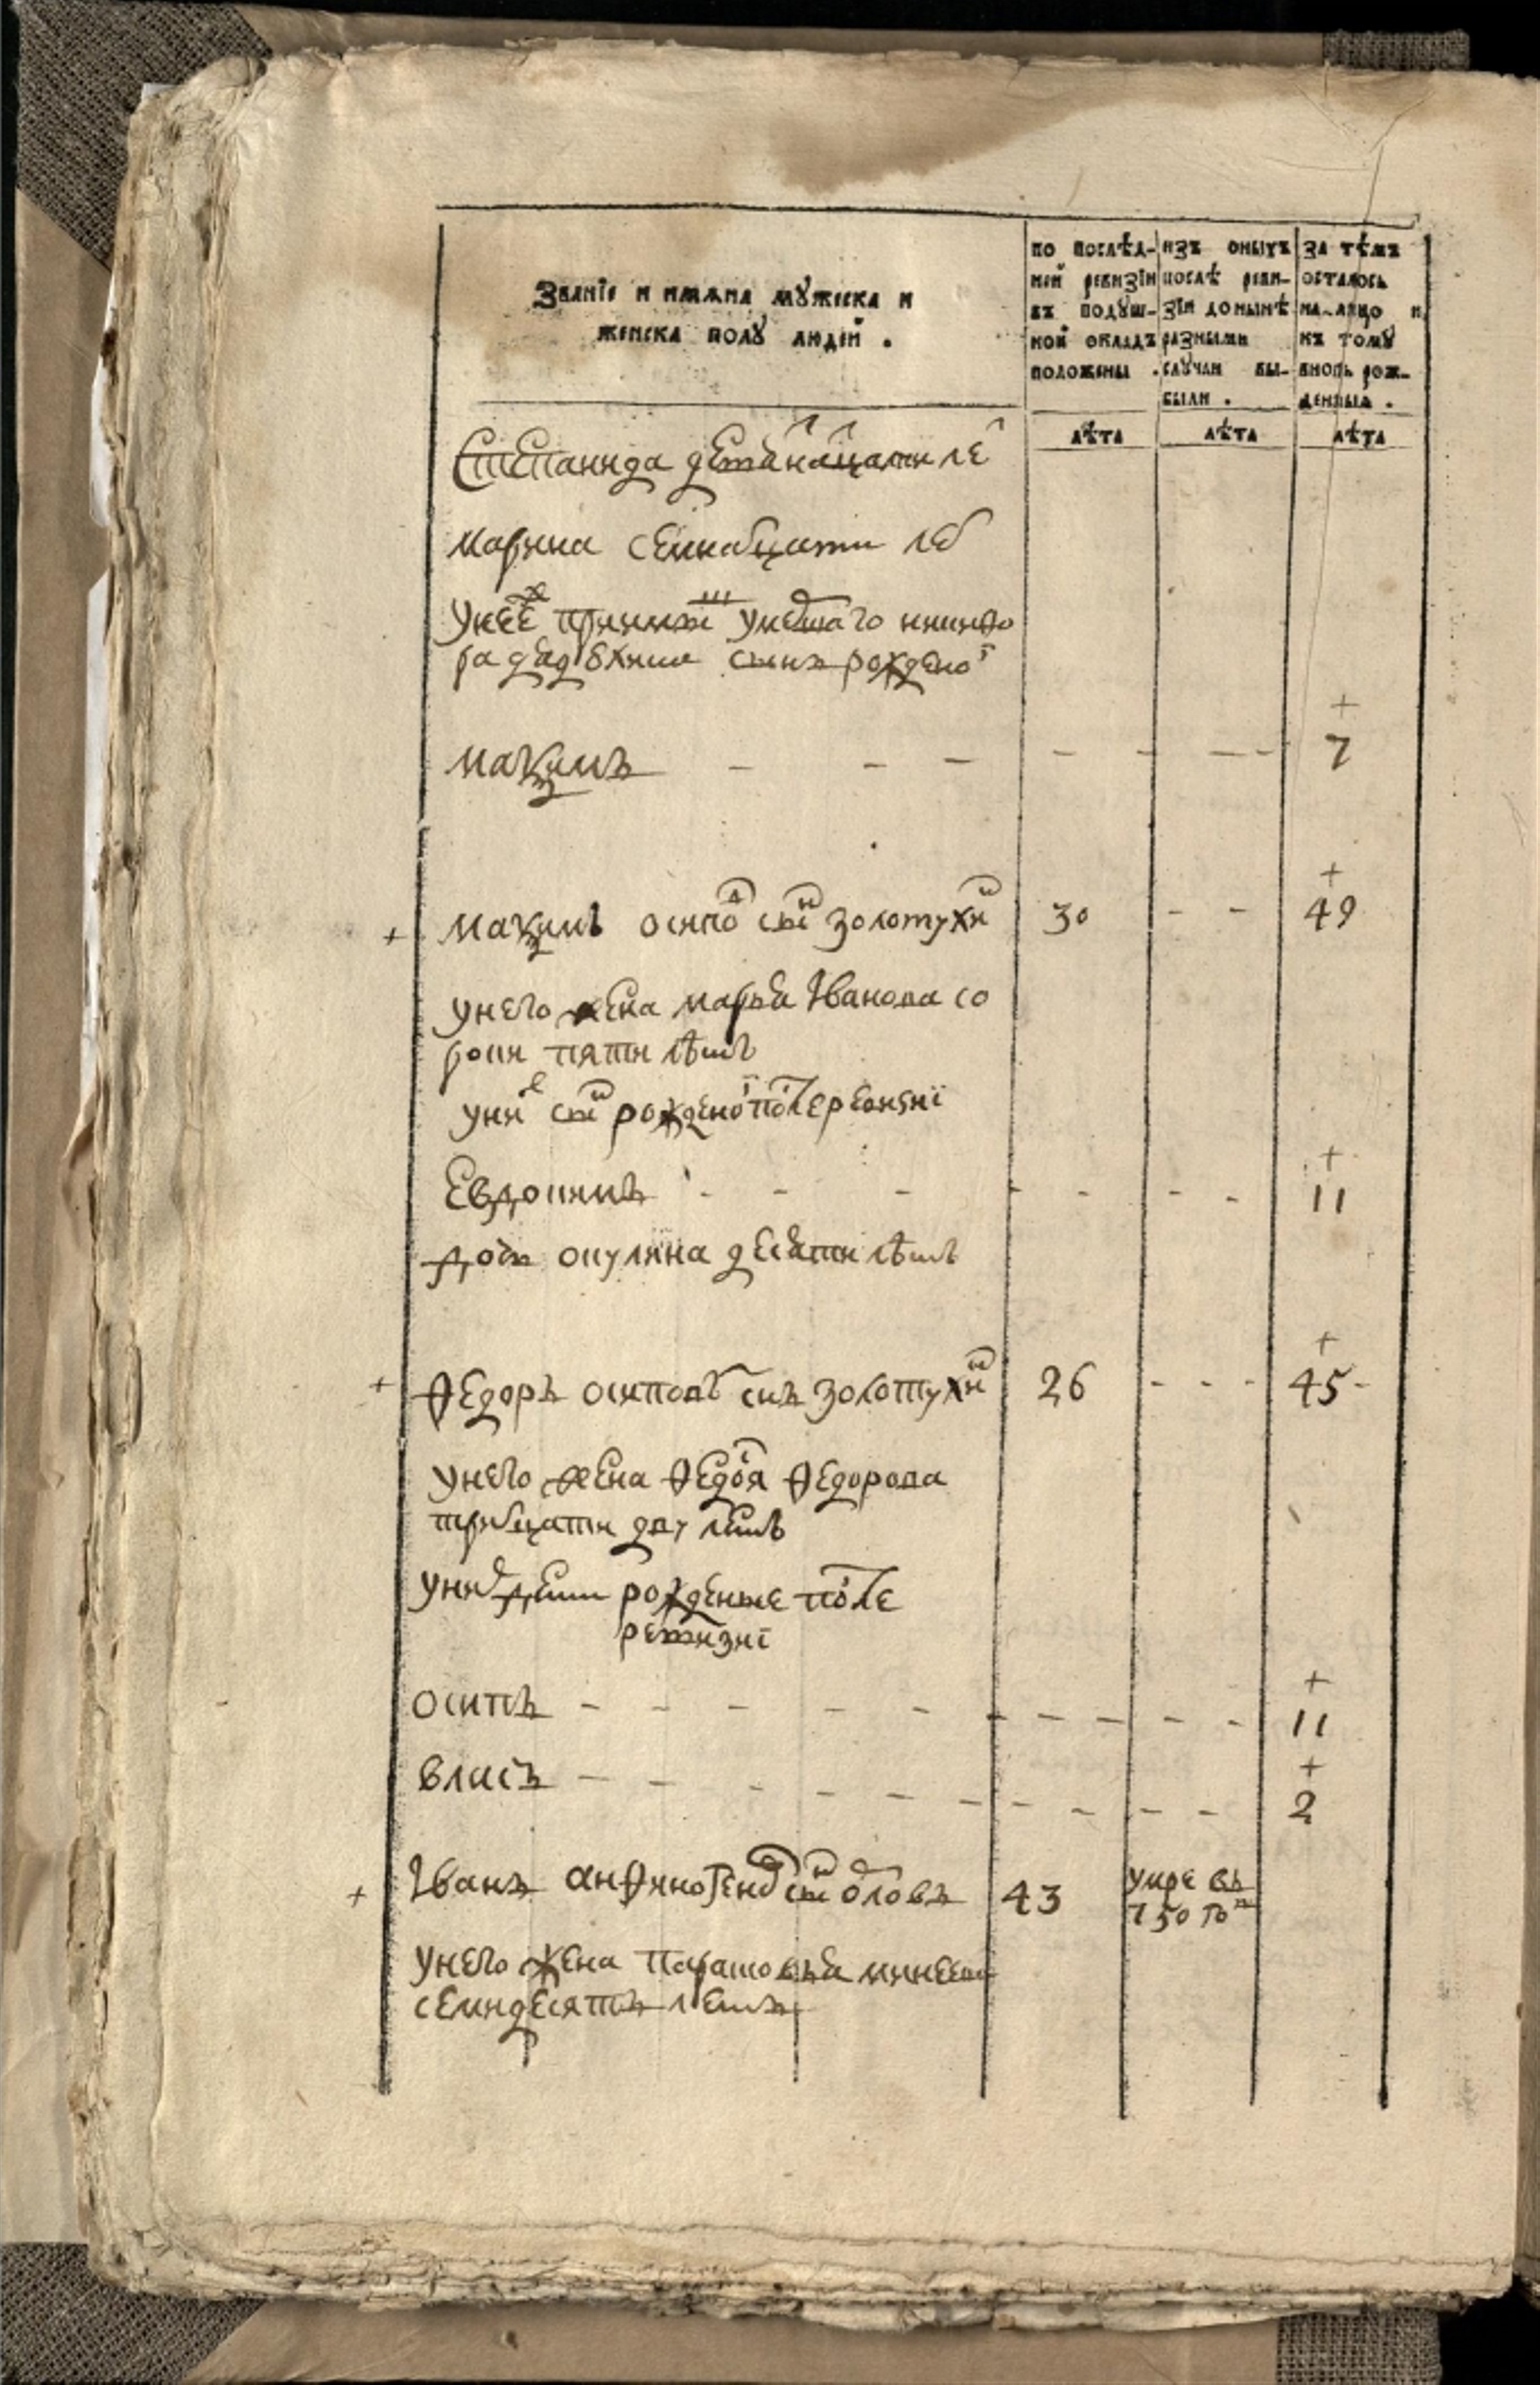 Званїе и имѧна мꙋжеска и
женска полꙋ людей .
по послѣд-
ней ревизїи
въ подꙋш-
ной окладъ
положены .
изъ оныхъ
послѣ реви-
зїи донынѣ
разными
слꙋчаи вы-
были .
за тѣмъ
осталось
на-лицо и
къ томꙋ
вновь рож-
денныя .
лѣта
лѣта
лѣта
Степанида девѧтнатцати лѣ
марина семнадцати лѣ
ра сынъ рожденой
+
маѯимъ - - - - - - - 7
+
+ маѯимъ осипоⷡ сыⷩ золотухиⷩ 30 - - 49
у него жена марья Іванова со
рока пяти лѣтъ
у ниⷯ сыⷩ рожденоⷤ поⷭле ревизиї
+
Евдокимъ - - - - - - - 11
дочь окулина десяти лѣтъ
+
+ Ѳедоръ осиповъ снъ золотухиⷩ 26 - - - 45 -
у него жена Ѳедоⷭя Ѳедорова
тритцати дву летъ
у ниⷯ дети рожденые поⷭле
ревизиї
+
осипъ - - - - - - - - - - 11
+
власъ - - - - - - - - - - 2
+ Іванъ сыⷩ 43 умре въ
750 гоⷣ
у него жена
семидесятъ летъ